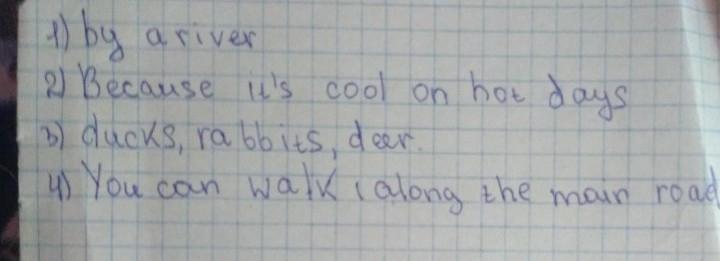 1) by a river
2) Because it's cool on hot days
3) ducks, rabbits, deer.
4) You can walk (along the main road